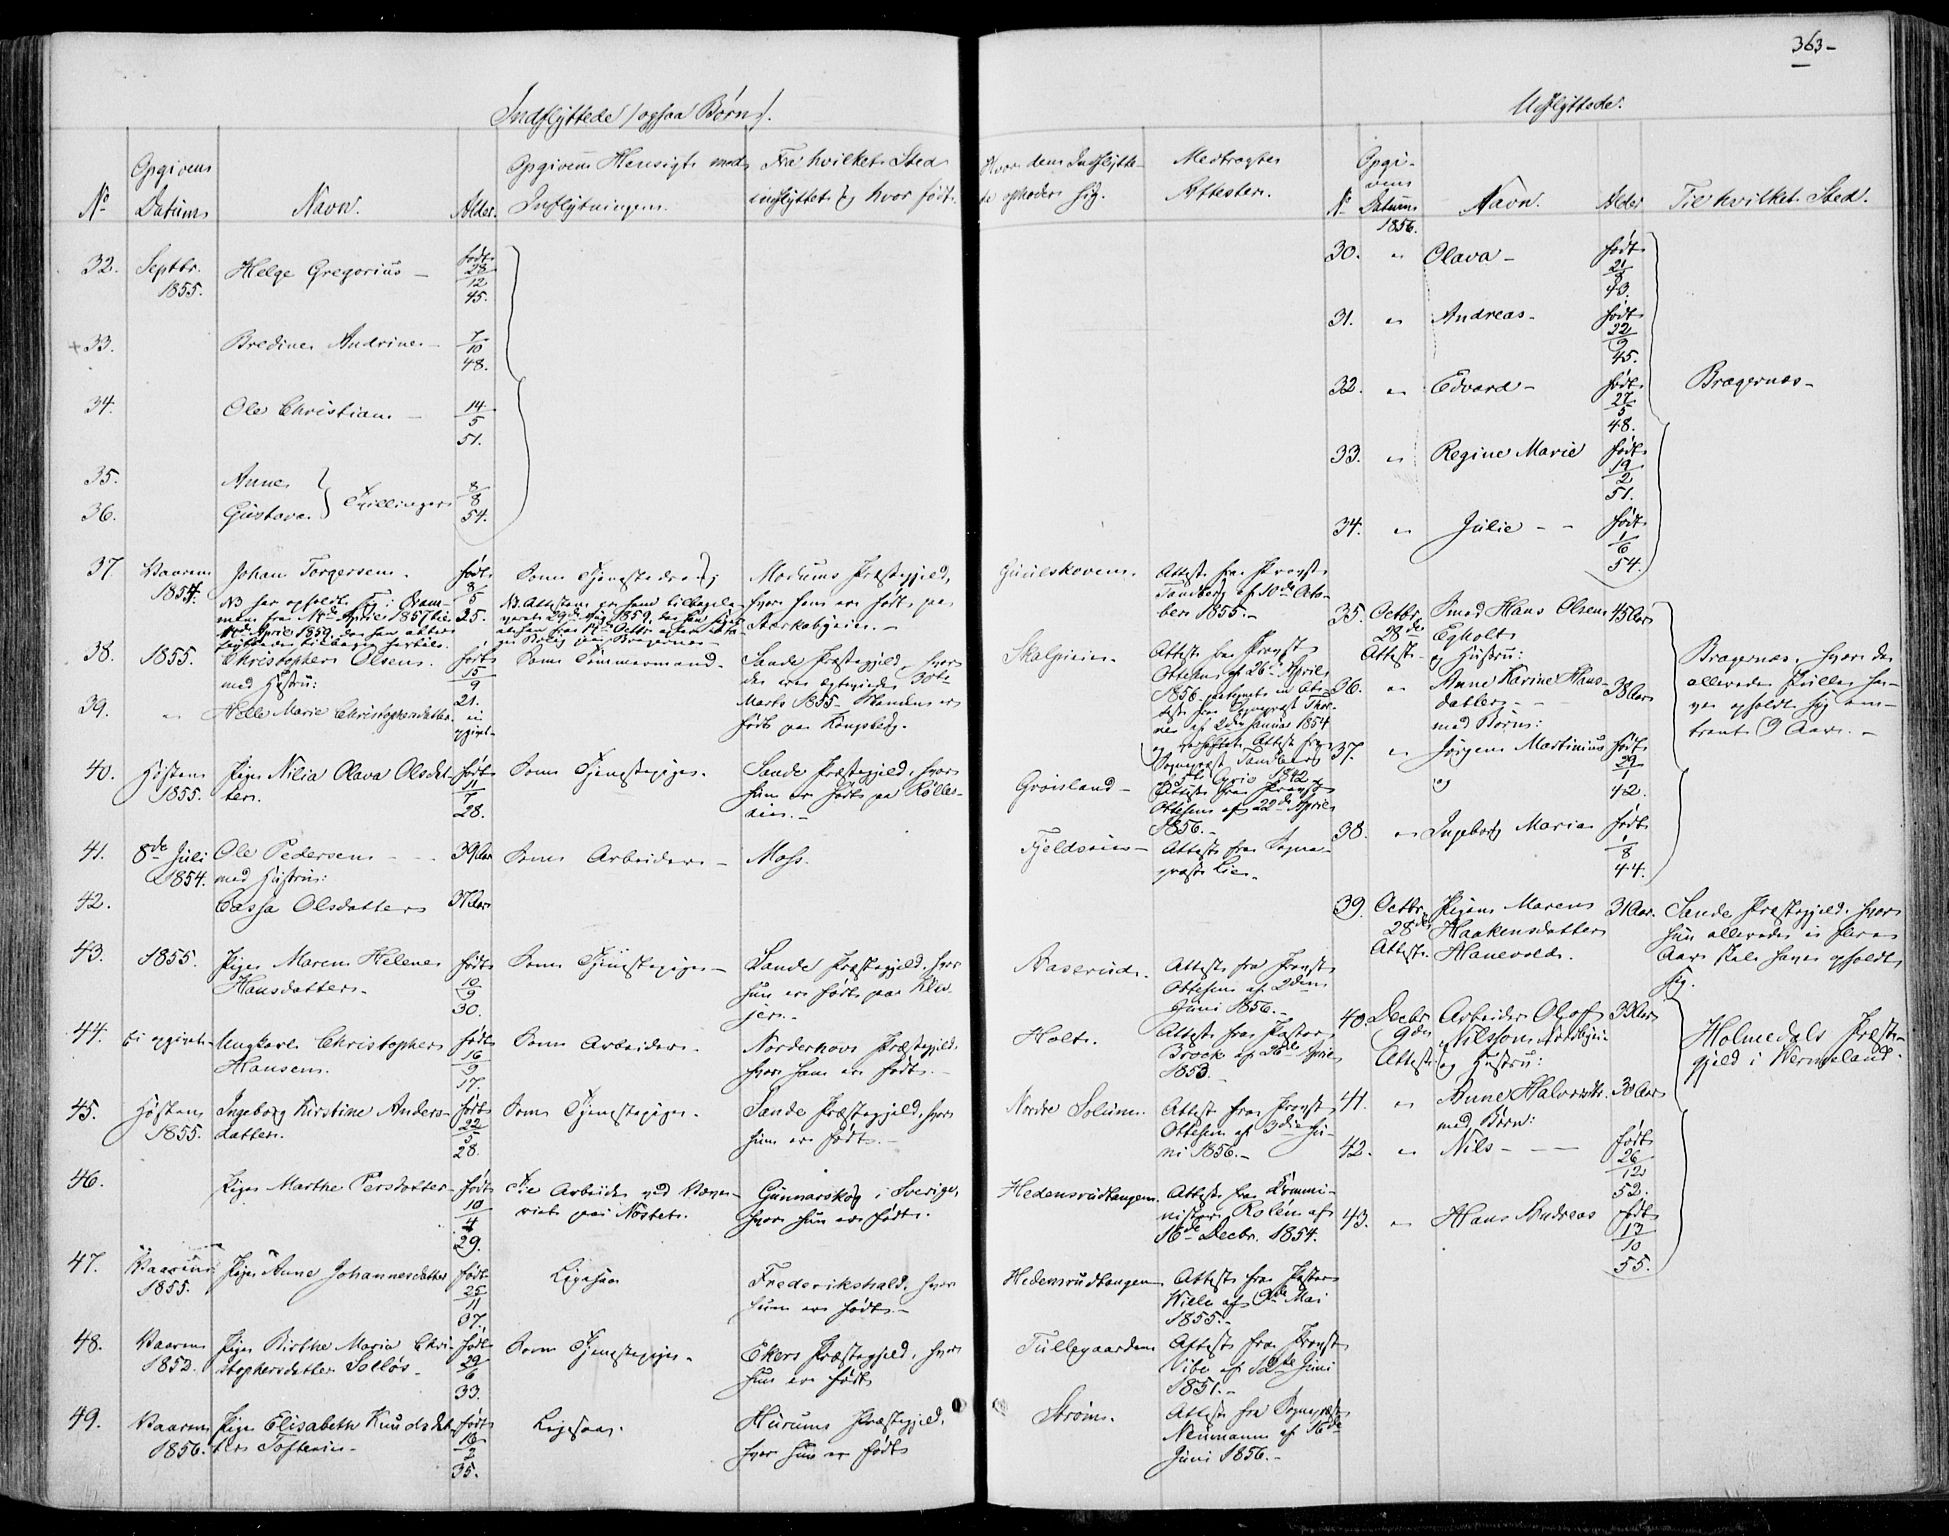 363-
Indflyttede /ogsaa Børn/.
Udflyttede.
No
Opgiven
Datum.
Navn.
Alder.
Opgiven Hensigt med
Indflytningen.
Fra hvilket Sted
indflyttet og hvor født.
Hvor den Indflytte-
de opholder sig.
Medbragte
Attester.
No
Opgi-
ven
Datum
1856.
Navn.
Alder
Til hvilket Sted.
32. Septbr. 1855. Helge Gregorius - født 28/12 45.
33. Bredine Andrine - 7/10 48.
34. Ole Christian - 14/5 51.
35. Anne
36. Gustava } Tvillinger 8/8 54.
37 Vaaren 1854. Johan Torgersen. født 8/5 25.
Som Tjenestedreng
Modums Præstegjeld,
hvor han er født, paa
Guulskoven.
Attest fra Provst
Tandberg af 10de Octo-
ber 1855.-
38. 1855. Christopher Olsen. født 15/9 21.
med Hustru:
Som Tømmermand.
Sande Præstegjeld, hvor
de ere egteviede 30te
Marts 1855 - Manden er
født paa Kongsberg.
Attest fra Provst
Ottesen af 26de April
1856
39. " Helle Marie Christophersdatter. ei opgivet
af 2den Januar 1854
40. Høsten 1855. Pige Nilia Olava Olsdat-
ter. født 11/7 28.
Som Tjenestepige.
Sande Præstegjeld, hvor
hun er født paa
Grøisland -
Attest fra Provst
Ottesen af 22de April
1856.-
41. 8de Juli 1854. Ole Pedersen - - 39 Aar Som Arbeider - Moss.
med Hustru:
Fjeldseie -
Attest fra Sogne-
præst Lie.
42. Cassa Olsdatter 37 Aar
43. 1855. Pige Maren Helene
Hansdatter. født 10/9 30.
Som Tjenestepige -
Sande Præstegjeld, hvor
hun er født paa
Naserud.
Attest fra Provst
Ottesen af 2den
Juni 1856.-
44. Ei opgivet Ungkarl Christopher
Hansen. født 16/9 17.
Som Arbeider.
Norderhovs Præstegjeld,
hvor han er født.-
Holt.
Attest fra Pastor
Brock af 26de April
1853.
45. Høsten 1855. Ingeborg Kirstine Anders-
datter. født 22/5 28.
Som Tjenestepige.
Sande Præstegjeld, hvor
hun er født.-
Nordre Solum.
Attest fra Provst
Ottesen af 3die Ju-
ni 1856.-
46. Pige Marthe Persdatter - født 10/4 29.
Til Arbeide ved Væve-
riet paa Nøstet.
Gunnarskog i Sverige,
hvor hun er født.
Hedensrudtangen.
Attest fra Kommi-
nister Rolén af
16de Decbr. 1854.
47. Vaaren 1855. Pige Anne Johannesdatter født 25/11 37.
Ligesaa
Frederikshald, hvor
hun er født.-
Hedensrudtangen
Attest fra Pastor
Wille af Mai
1855.-
48. Vaaren 1852. Pige Birthe Maria Chri-
stophersdatter Solløs. født 29/6 33.
Som Tjenestepige.
Ekers Præstegjeld, hvor
hun er født
Tollegaarden
Attest fra Provst
Vibe af 12te Juni
1851.-
49. Vaaren 1856. Pige Elisabeth Knudsdat-
ter Tofteeie. født 16/2 35.
Ligesaa.
Hurum Præstegjeld,
hvor hun er født
Strøm.
Attest fra Sognepræst
Neumann af 16de
Juni 1856.-
30. " Olava - født 21/8 43.
31. " Andreas - født 22/9 45.
32. " Edvard - født 27/5 48.
Bragernæs -
33. " Regine Marie født 19/2 51.
34. " Julie - - født 1/6 54.
35. Octbr. 28de Attest Smed Hans Olsen 45 Aar
Egholt
og Hustru:
36. " Anne Karine Hans-
datter - 38 Aar
med Børn:
Bragernæs, hvor de
allerede skulle ha-
ve opholdt sig om-
trent 9 Aar.-
37. " Jørgen Martinius født 29/1 42.
og
38. " Ingeborg Maria født 1/8 44.
39. Octbr. 28de Attest. Pigen Maren
Haakensdatter
Hanevold. 31 Aar.
Sande Præstegjeld, hvor
hun allerede i flere
Aar skal have opholdt
sig.
40. Decbr. 9de Attest Arbeider Olof
Nilsson
og Hustru: 33 Aar
Holmedals Præste-
gjeld i Vermeland.
41. " Anne Halvorsdtr. 30 Aar
med Børn:
42. " Nils - - født 26/12 52.
43. " Hans Andreas født 13/10 55.